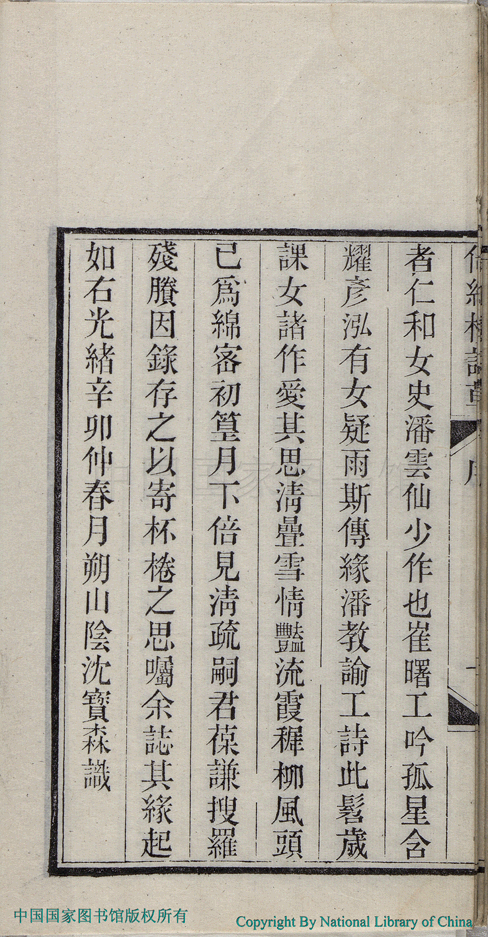 者仁和女史潘雲仙少作也崔曙工吟孤星含
耀彥泓有女疑雨斯傳緣潘教諭工詩此髫歲
課女諸作愛其思淸疊雪情豔流霞穉柳風頭
已爲綿密初篁月下倍見淸疏嗣君葆謙搜羅
殘賸因錄存之以寄杯棬之思囑余誌其緣起
如右光緒辛卯仲春月朔山陰沈寶森識
中国国家图书馆版权所有
Copyright By National Library of China